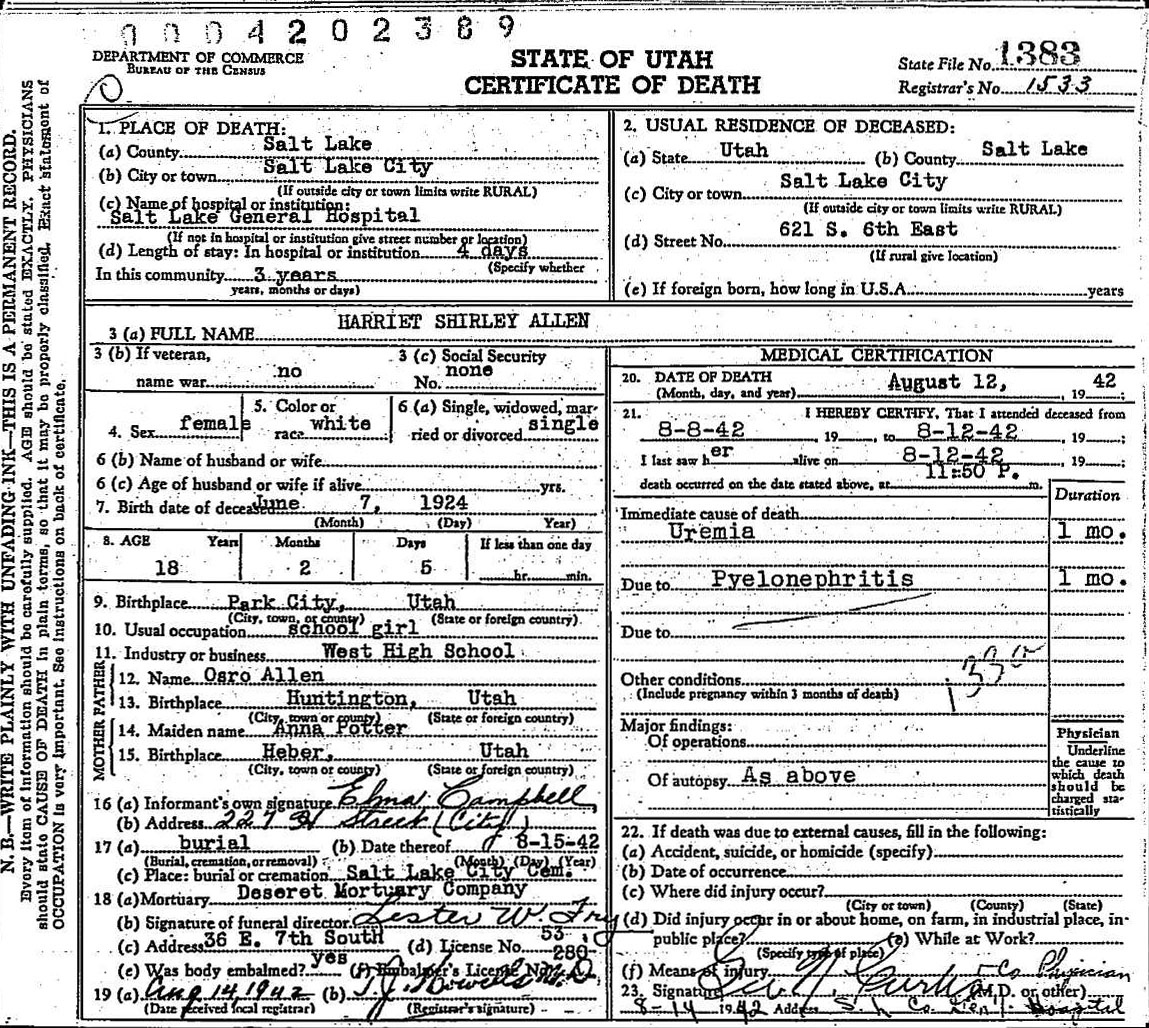 0004202389
DEPARTMENT OF COMMERCE
BUREAU OF THE CENSUS
STATE OF UTAH
CERTIFICATE OF DEATH
State File No. 1383
Registrar's No. 1533
N. B.—WRITE PLAINLY WITH UNFADING INK—THIS IS A PERMANENT RECORD.
Every item of information should be carefully supplied. AGE should be stated EXACTLY. PHYSICIANS
should state CAUSE OF DEATH in plain terms, so that it may be properly classified. Exact statement of
OCCUPATION is very important. See instructions on back of certificate.
1. PLACE OF DEATH:
(a) County Salt Lake
(b) City or town Salt Lake City
(If outside city or town limits write RURAL)
(c) Name of hospital or institution:
Salt Lake General Hospital
(If not in hospital or institution give street number or location)
(d) Length of stay: In hospital or institution 4 days
(Specify whether
In this community 3 years
years, months or days)
2. USUAL RESIDENCE OF DECEASED:
(a) State Utah (b) County Salt Lake
(c) City or town Salt Lake City
(If outside city or town limits write RURAL)
(d) Street No. 621 S. 6th East
(If rural give location)
(e) If foreign born, how long in U.S.A. years
3 (a) FULL NAME HARRIET SHIRLEY ALLEN
3 (b) If veteran, name war no
3 (c) Social Security No. none
4. Sex female
5. Color or race white
6 (a) Single, widowed, married or divorced single
6 (b) Name of husband or wife
6 (c) Age of husband or wife if alive yrs.
7. Birth date of deceased June 7, 1924
(Month) (Day) Year)
8. AGE Years Months Days If less than one day
18 2 5 hr. min.
9. Birthplace Park City, Utah
(City, town, or county) (State or foreign country)
10. Usual occupation school girl
11. Industry or business West High School
FATHER
12. Name Osro Allen
13. Birthplace Huntington, Utah
(City, town or county) (State or foreign country)
MOTHER
14. Maiden name Anna Potter
15. Birthplace Heber, Utah
(City, town or county) (State or foreign country)
16 (a) Informant's own signature Elma Campbell
(b) Address 227 H Street (City)
17 (a) burial (b) Date thereof 8-15-42
(Burial, cremation, or removal) (Month) (Day) (Year)
(c) Place: burial or cremation Salt Lake City Cem.
18 (a) Mortuary Deseret Mortuary Company
(b) Signature of funeral director Lester W. Fry
(c) Address 36 E. 7th South (d) License No. 53
(e) Was body embalmed? yes (f) Embalmer's License No. 280
19 (a) Aug 14, 1942 (b) T.J. Howells M.D.
(Date received local registrar) (Registrar's signature)
MEDICAL CERTIFICATION
20. DATE OF DEATH August 12, 19 42
(Month, day, and year)
21. I HEREBY CERTIFY, That I attended deceased from
8-8-42, 19 , to 8-12-42, 19 ;
I last saw her alive on 8-12-42, 19 ;
death occurred on the date stated above, at 11:50 P. m.
Duration
Immediate cause of death
Uremia 1 mo.
Due to Pyelonephritis 1 mo.
Due to
Other conditions
(Include pregnancy within 3 months of death)
Major findings:
Of operations
Of autopsy As above
Physician
Underline
the cause to
which death
should be
charged sta-
tistically
22. If death was due to external causes, fill in the following:
(a) Accident, suicide, or homicide (specify)
(b) Date of occurrence
(c) Where did injury occur?
(City or town) (County) (State)
(d) Did injury occur in or about home, on farm, in industrial place, in-
public place? (e) While at Work?
(Specify type of place)
(f) Means of injury
Co Physician
23. Signature (M.D. or other)
8-14 1942 Address S. L. Co. Gen'l Hospital